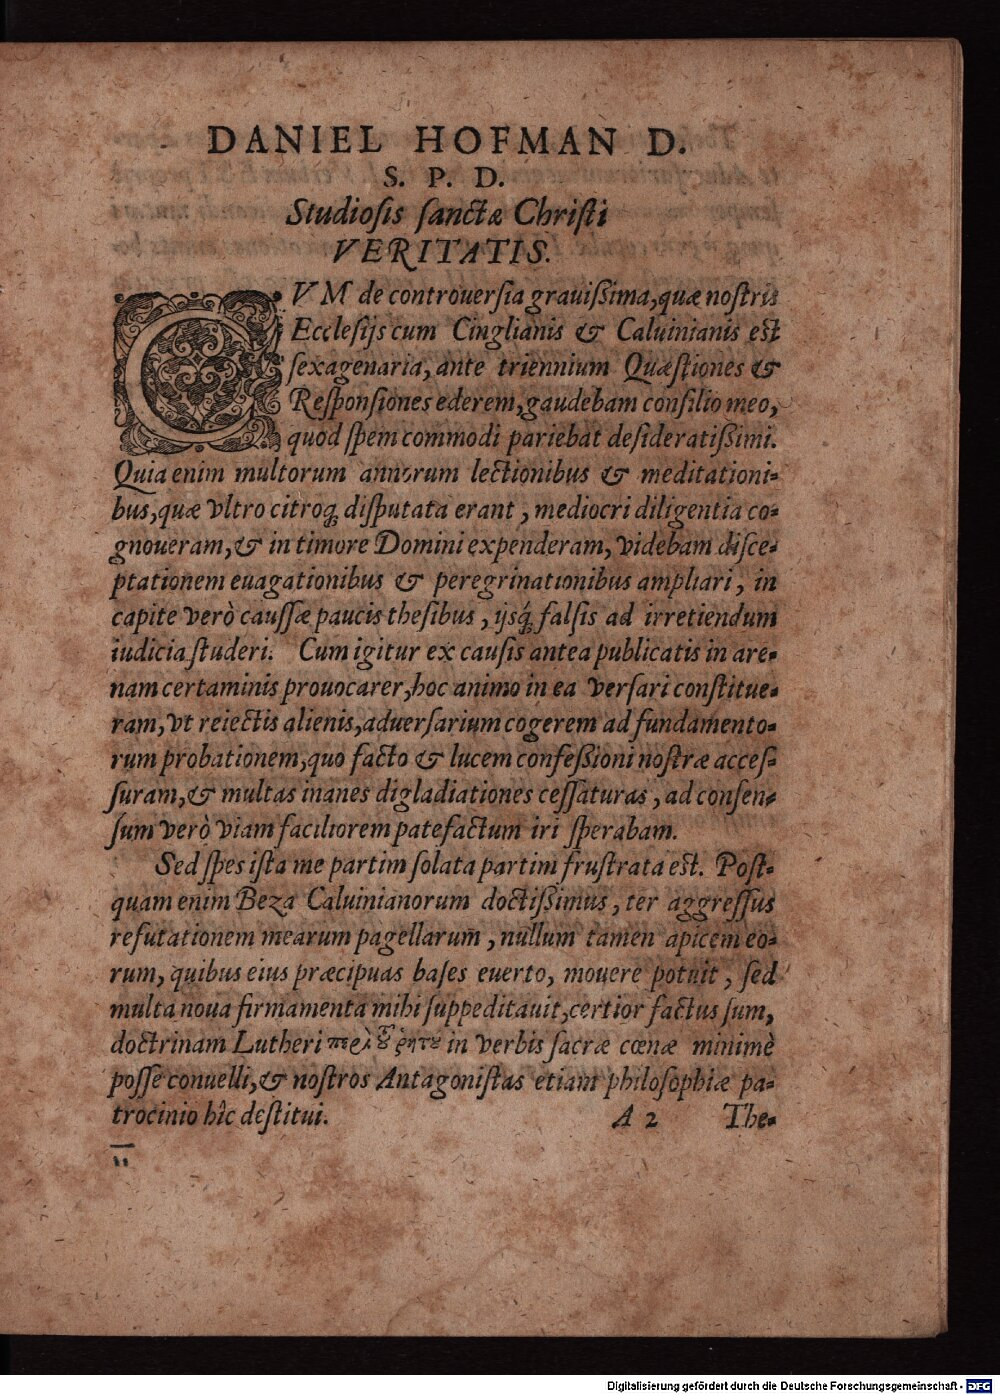 DANIEL HOFMAN D.
S. P. D.
Studiosis sanctæ Christi
VERITATIS.
CVM de controuersia grauißima, quæ nostris
Ecclesijs cum Cinglianis & Caluinianis est
sexagenaria, ante triennium Quæstiones &
Responsiones ederem, gaudebam consilio meo,
quod spem commodi pariebat desideratißimi.
Quia enim multorum annorum lectionibus & meditationi-
bus, quæ vltro citroq; disputata erant, mediocri diligentia co-
gnoueram, & in timore Domini expenderam, videbam disce-
ptationem euagationibus & peregrinationibus ampliari, in
capite verò caussæ paucis thesibus, ijsq́; falsis ad irretiendum
iudicia studeri. Cum igitur ex causis antea publicatis in are-
nam certaminis prouocarer, hoc animo in ea versari constitue-
ram, vt reiectis alienis, aduersarium cogerem ad fundamento-
rum probationem, quo facto & lucem confeßioni nostræ acces-
suram, & multas inanes digladiationes cessaturas, ad consen-
sum verò viam faciliorem patefactum iri sperabam.
Sed spes ista me partim solata partim frustrata est. Post-
quam enim Beza Caluinianorum doctißimus, ter aggressus
refutationem mearum pagellarum, nullum tamen apicem eo-
rum, quibus eius præcipuas bases euerto, mouere potuit, sed
multa noua firmamenta mihi suppeditauit, certior factus sum,
doctrinam Lutheri περὶ τοῦ ῥητοῦ in verbis sacræ cœnæ minimè
posse conuelli, & nostros Antagonistas etiam philosophiæ pa-
trocinio hîc destitui.
A 2 The-
Digitalisierung gefördert durch die Deutsche Forschungsgemeinschaft - DFG